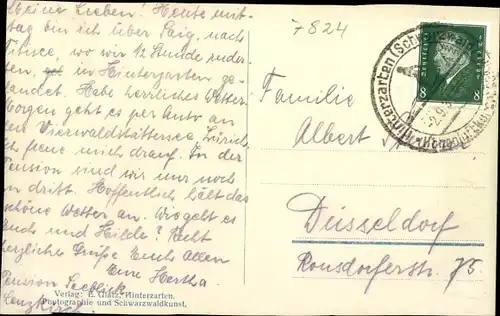 Meine Lieben! Heute mit-
tag bin ich über Saig, nach
Titisee, wo wir 1/2 Stunde ruder-
ten, in Hinterzarten ge-
landet. Habe herrliches Wetter.
Morgen geht es per Auto an
den Vierwaldstättersee, Zürich,
ich freue mich drauf. In der
Pension sind wir nur noch
zu dritt. Hoffentlich hält das
schöne Wetter an. Wie geht es
Euch und Hilde? Recht
herzliche Grüße Euch Allen
Eure Hertha
Pension Seeblick
Lenzkirch.
Verlag: E. Glatz, Hinterzarten.
Photographie und Schwarzwaldkunst.
7824
Hinterzarten (Schwarzwald)
Höhenluftkurort
8 8
Familie
Albert
Düsseldorf
Ronsdorferstr. 75.